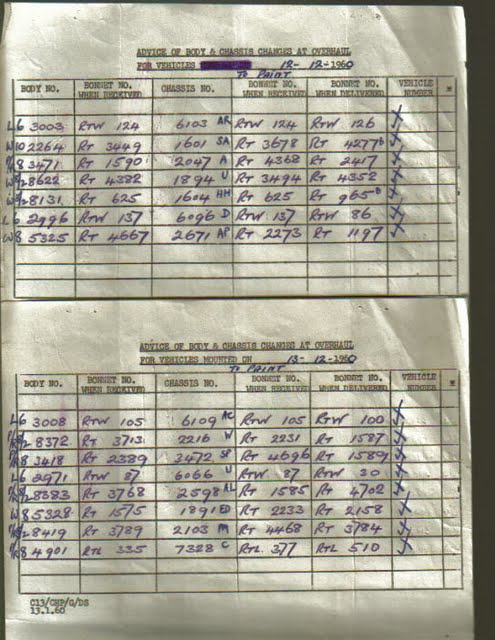 ADVICE OF BODY & CHASSIS CHANGES AT OVERHAUL
FOR VEHICLES 12-12-1960
TO PAINT
BODY NO. BONNET NO. WHEN RECEIVED CHASSIS NO. BONNET NO. WHEN RECEIVED BONNET NO. WHEN DELIVERED VEHICLE NUMBER
L6 3003 RTW 124 6103 AR RTW 124 RTW 126
W10 2264 RT 3449 1601 SA RT 3678 RT 4277
8 3471 RT 1590 2047 A RT 4368 RT 2417
8622 RT 4382 1894 U RT 3494 RT 4352
8131 RT 625 1604 HH RT 625 RT 965
L6 2996 RTW 137 6096 D RTW 137 RTW 86
W8 5325 RT 4667 2671 AP RT 2273 RT 1197
ADVICE OF BODY & CHASSIS CHANGES AT OVERHAUL
FOR VEHICLES MOUNTED ON 13-12-1960
TO PAINT
BODY NO. BONNET NO. WHEN RECEIVED CHASSIS NO. BONNET NO. WHEN RECEIVED BONNET NO. WHEN DELIVERED VEHICLE NUMBER
L6 3008 RTW 105 6109 AC RTW 105 RTW 100
8372 RT 3713 2216 W RT 2231 RT 1587
8 3418 RT 2389 3472 SP RT 4696 RT 1589
L6 2971 RTW 87 6066 U RTW 87 RTW 30
8383 RT 3768 2598 AL RT 1585 RT 4702
W8 5328 RT 1575 1891 ED RT 2233 RT 2158
8419 RT 3789 2103 M RT 4468 RT 3784
8 4901 RTL 335 7328 C RTL 377 RTL 510
C13/CHP/G/DS
13.1.60